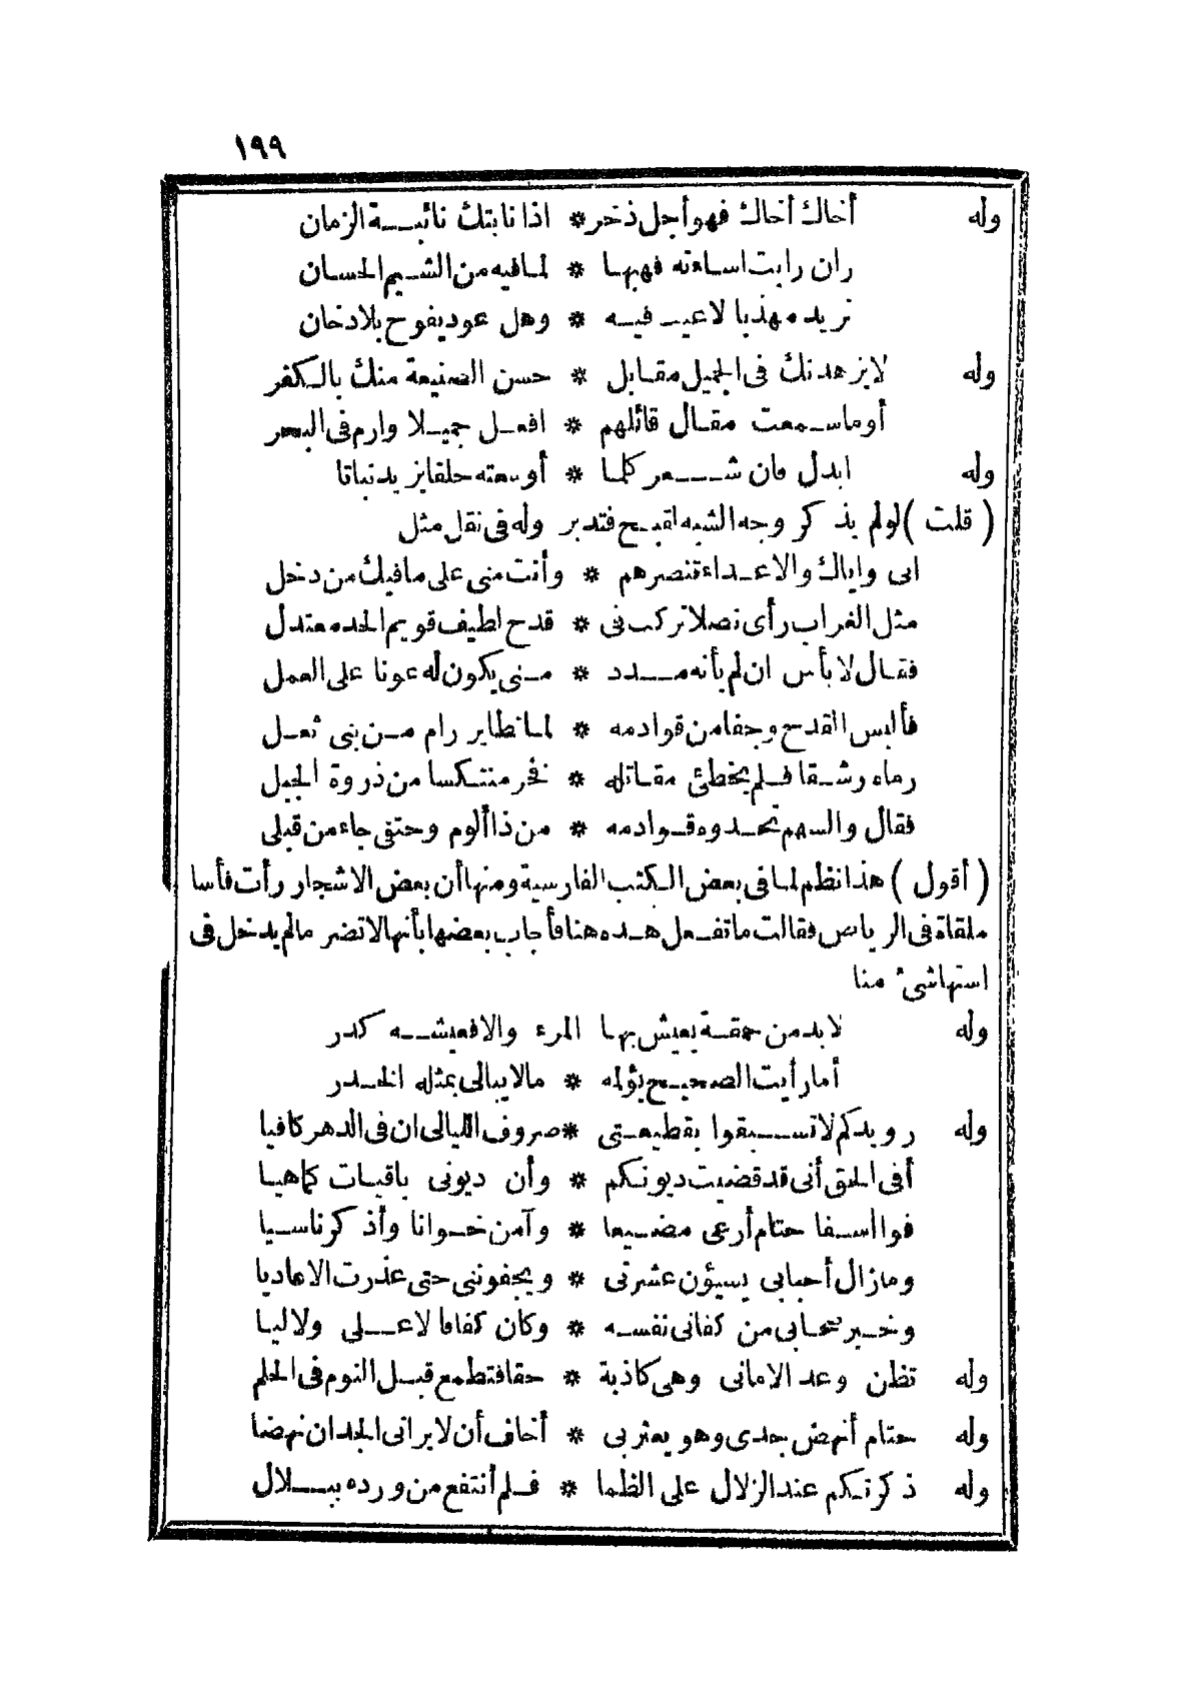 ١٩٩
وله أخاك أخاك فهو أجل ذخر * اذا نابتك نائبة الزمان
وان رابت اساءته فهبها * لما فيه من الشيم الحسان
تريد مهذبا لا عيب فيه * وهل عود يفوح بلا دخان
وله لا يزهدنك فى الجميل مقابل * حسن الصنيعة منك بالكفر
أو ما سمعت مقال قائلهم * افعل جميلا وارم فى البحر
وله ابدل فان شعر كلما * أوسعته حلقا يزيد نباتا
( قلت ) لو لم يذكر وجه الشبه لقبح فتدبر وله فى نقل مثل
انى واياك والاعداء تنصرهم * وأنت منى على ما فيك من دخل
مثل الغراب رأى نصلا تركب فى * قدح لطيف قويم الحد معتدل
فقال لا بأس ان لم يأته مدد * منى يكون له عونا على العمل
فألبس القدح وحفا من قوادمه * لما تطاير رام من بنى ثعل
رماه رشقا فلم يخطئ مقاتله * فخر منتكسا من ذروة الجبل
فقال والسهم تحدوه قوادمه * من ذا ألوم وحتفى جاء من قبلى
( أقول ) هذا نظم لما فى بعض الكتب الفارسية ومنها أن بعض الاشجار رأت فأسا
ملقاة فى الرياض فقالت ما تفعل هذه هنا فأجاب بعضها بأنها لا تضر مالم يدخل فى
استها شئ منا
وله لا بد من حمقة يعيش بها المرء والا فعيشه كدر
أما رأيت الصحيح يؤلمه * مالا يبالى بمثله الخدر
وله رويدكم لا تسبقوا بقطيعتى * صروف الليالى ان فى الدهر كافيا
أفى الحق أنى قد قضيت ديونكم * وأن ديونى باقيات كما هيا
فوا أسفا حتام أرعى مضيعا * وآمن خوانا وأذكر ناسيا
وما زال أحبابى يسيؤن عشرتى * ويجفوننى حتى عذرت الاعاديا
وخير صحابى من كفانى نفسه * وكان كفافا لا على ولا ليا
وله تظن وعد الامانى وهى كاذبة * حقا فتطمع قبل النوم فى الحلم
وله حتام أنهض جدى وهو يعثر بى * أخاف أن لا برانى الجد ان نهضا
وله ذكرتكم عند الزلال على الظما * فلم أنتفع من ورده ببلال